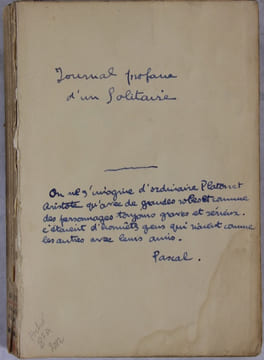 Journal profane
d'un Solitaire
On ne s'imagine d'ordinaire Platon et
Aristote qu'avec de grandes robes et comme
des personnages toujours graves et sérieux.
c'étaient d'honnêtes gens qui riaient comme
les autres avec leurs amis.
Pascal.